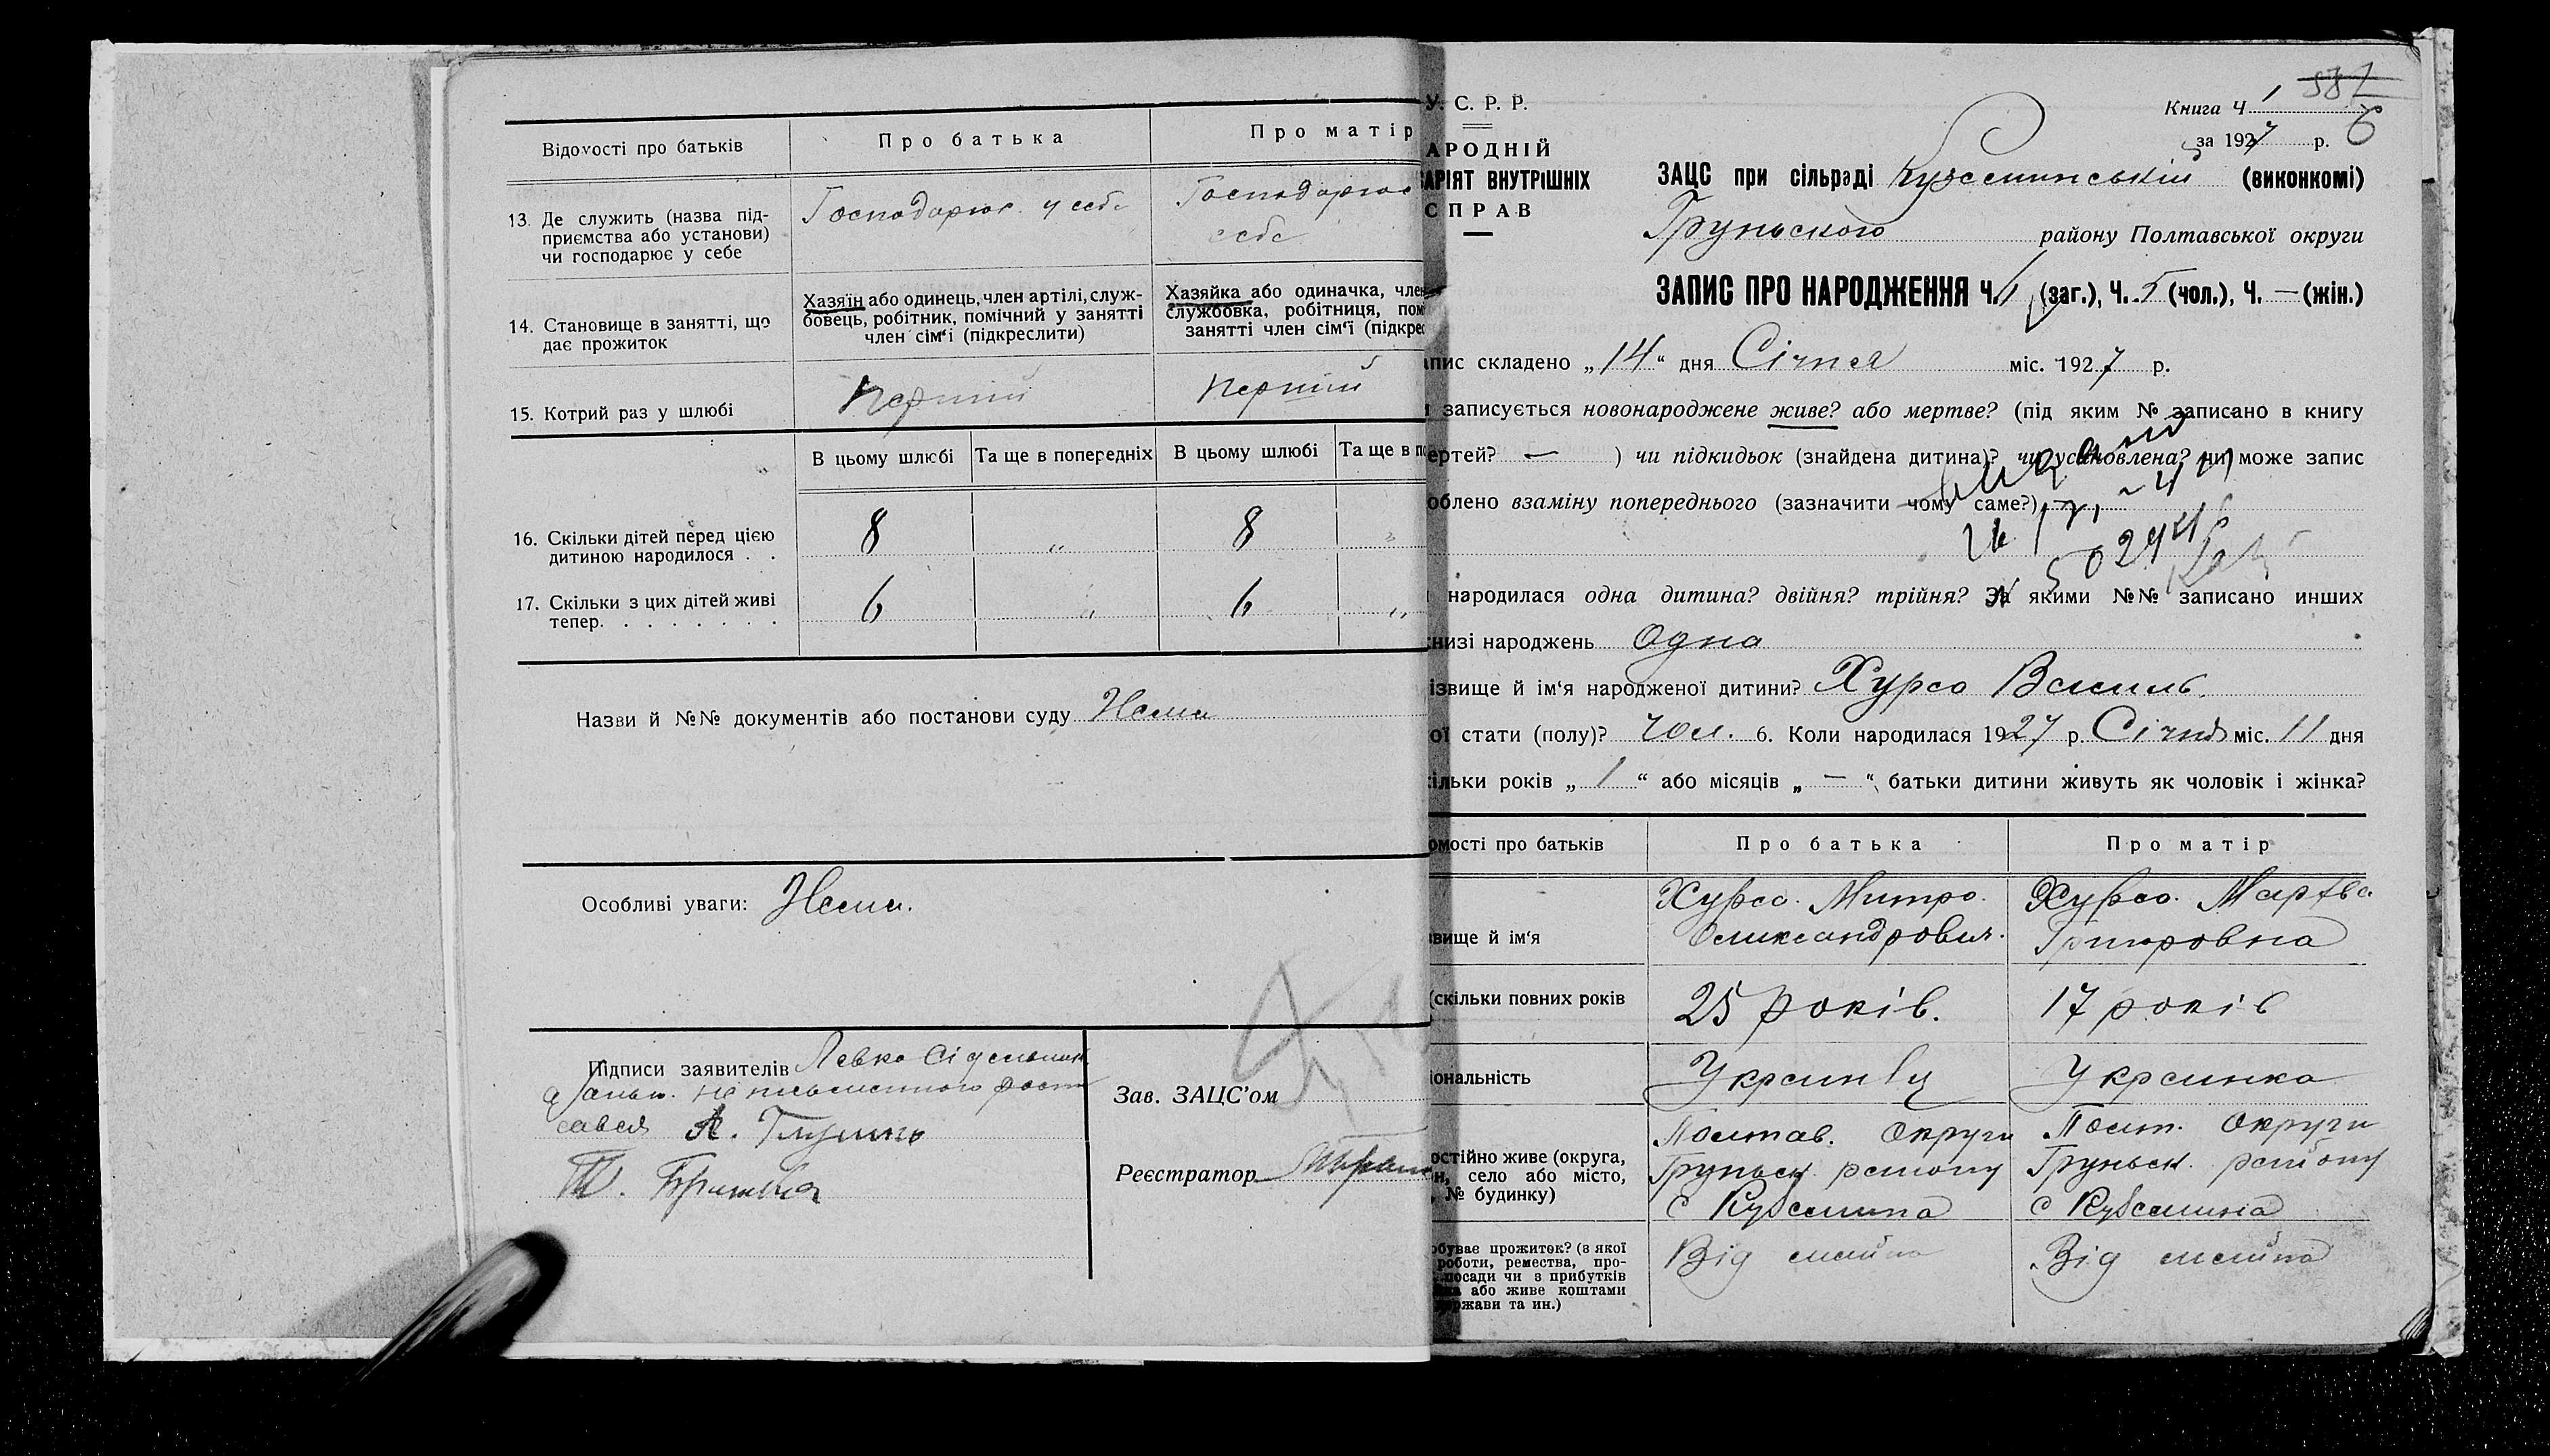 Відомості про батьків
Про батька
Про матір
13. Де служить (назва під-
приємства або установи)
чи господарює у себе
Господарює у себе
Господарює
себе
14. Становище в занятті, що
дає прожиток
Хазяїн або одинець, член артілі, служ-
бовець, робітник, помічний у занятті
член сім'ї (підкреслити)
Хазяйка або одиначка, член
службовка, робітниця, пом
занятті член сім'ї (підкрес
15. Котрий раз у шлюбі
Перший
Перший
В цьому шлюбі
Та ще в попередніх
В цьому шлюбі
Та ще в по
16. Скільки дітей перед цією
дитиною народилося . .
8 „ 8 „
17. Скільки з цих дітей живі
тепер. . . . . . . .
6 „ 6 „
Назви й №№ документів або постанови суду Нема
Особливі уваги: Нема.
Підписи заявителів Левко
А.
Зав. ЗАЦС'ом
Реєстратор
У. С. Р. Р.
АРОДНІЙ
АРІЯТ ВНУТРІШНІХ
СПРАВ
587
Книга Ч 1
6
за 1927 р.
ЗАЦС при сільраді Куземинській (виконкомі)
Груньского району Полтавської округи
ЗАПИС ПРО НАРОДЖЕННЯ Ч. (заг.), Ч. 5 (чол.), Ч. — (жін.)
пис складено „14“ дня Січня міс. 1927 р.
записується новонароджене живе? або мертве? (під яким № записано в книгу
ертей? — ) чи підкидьок (знайдена дитина)? чи установлена? чи може запис
облено взаміну попереднього (зазначити чому саме?) —
народилася одна дитина? двійня? трійня? За якими №№ записано инших
низі народжень Одна
ізвище й ім'я народженої дитини? Хурсо Василь.
ої стати (полу)? Чол. 6. Коли народилася 1927 р. Січня міс. 11 дня
ільки років „ 1 “ або місяців „ — “ батьки дитини живуть як чоловік і жінка?
омості про батьків
Про батька
Про матір
звище й ім'я
Хурсо Митро.
Олександрович.
Хурсо Марфа
Григоровна
(скільки повних років
25 років.
17 років
іональність
Українец
Українка
остійно живе (округа,
н, село або місто,
, № будинку)
Полтав. Округи
Груньск. району
с Куземина
Полт. Округи
Груньск. району
с Куземина
обуває прожиток? (з якої
роботи, ремества, про-
посади чи з прибутків
або живе коштами
ржави та ин.)
Від майна
Від майна